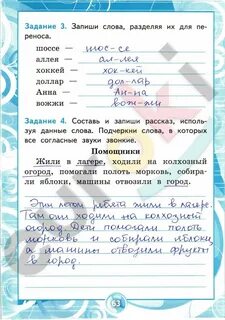 Задание 3. Запиши слова, разделяя их для пе-
реноса.
шоссе — шос-се
аллея — ал-лея
хоккей — хок-кей
доллар — дол-лар
Анна — Ан-на
вожжи — вож-жи
Задание 4. Составь и запиши рассказ, исполь-
зуя данные слова. Подчеркни слова, в которых
все согласные звуки звонкие.
Помощники
Жили в лагере, ходили на колхозный
огород, помогали полоть морковь, собира-
ли яблоки, машины отвозили в город.
Этим летом ребята жили в лагере.
Там они ходили на колхозный
огород. Дети помогали полоть
морковь и собирали яблоки,
а машины отвозили фрукты
в город.
53